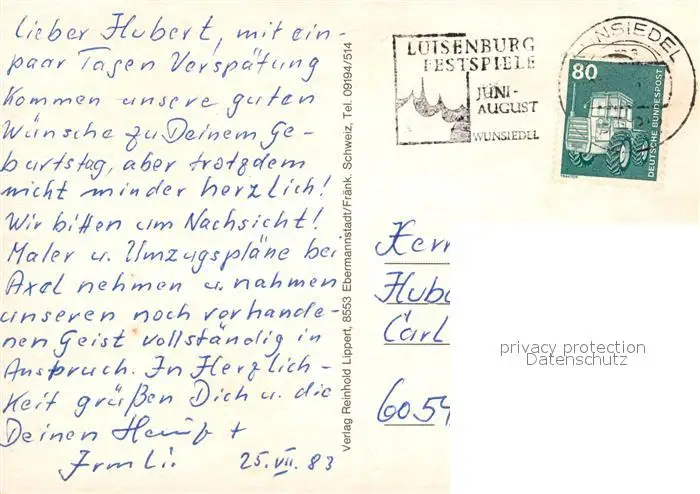 lieber Hubert, mit ein-
paar Tagen Verspätung
kommen unsere guten
Wünsche zu Deinem Ge-
burtstag, aber trotzdem
nicht minder herzlich!
Wir bitten um Nachsicht!
Maler u. Umzugspläne bei
Axel nehmen u. nahmen
unseren noch vorhande-
nen Geist vollständig in
Anspruch. In Herzlich-
keit grüßen Dich u. die
Deinen
Irmli.
25.VII.83
Verlag Reinhold Lippert, 8553 Ebermannstadt/Fränk. Schweiz, Tel. 09194/514
LUISENBURG
FESTSPIELE
JUNI-
AUGUST
WUNSIEDEL
NSIEDEL
80
DEUTSCHE BUNDESPOST
TRAKTOR
Herr
Hube
Carl
6054
privacy protection
Datenschutz